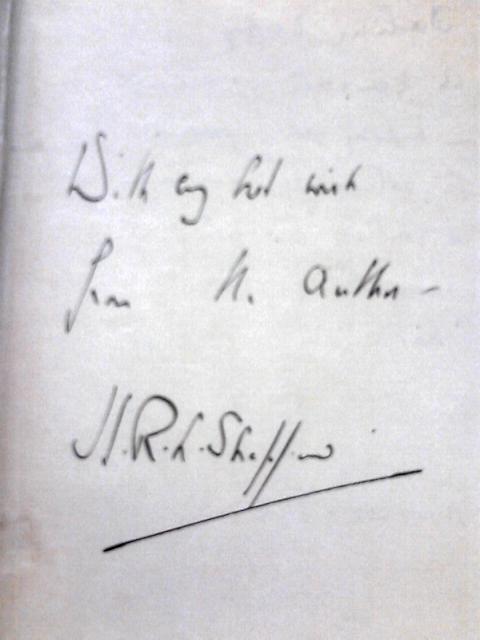 With my best wish
from the Author -
H.R.L. Sheppard